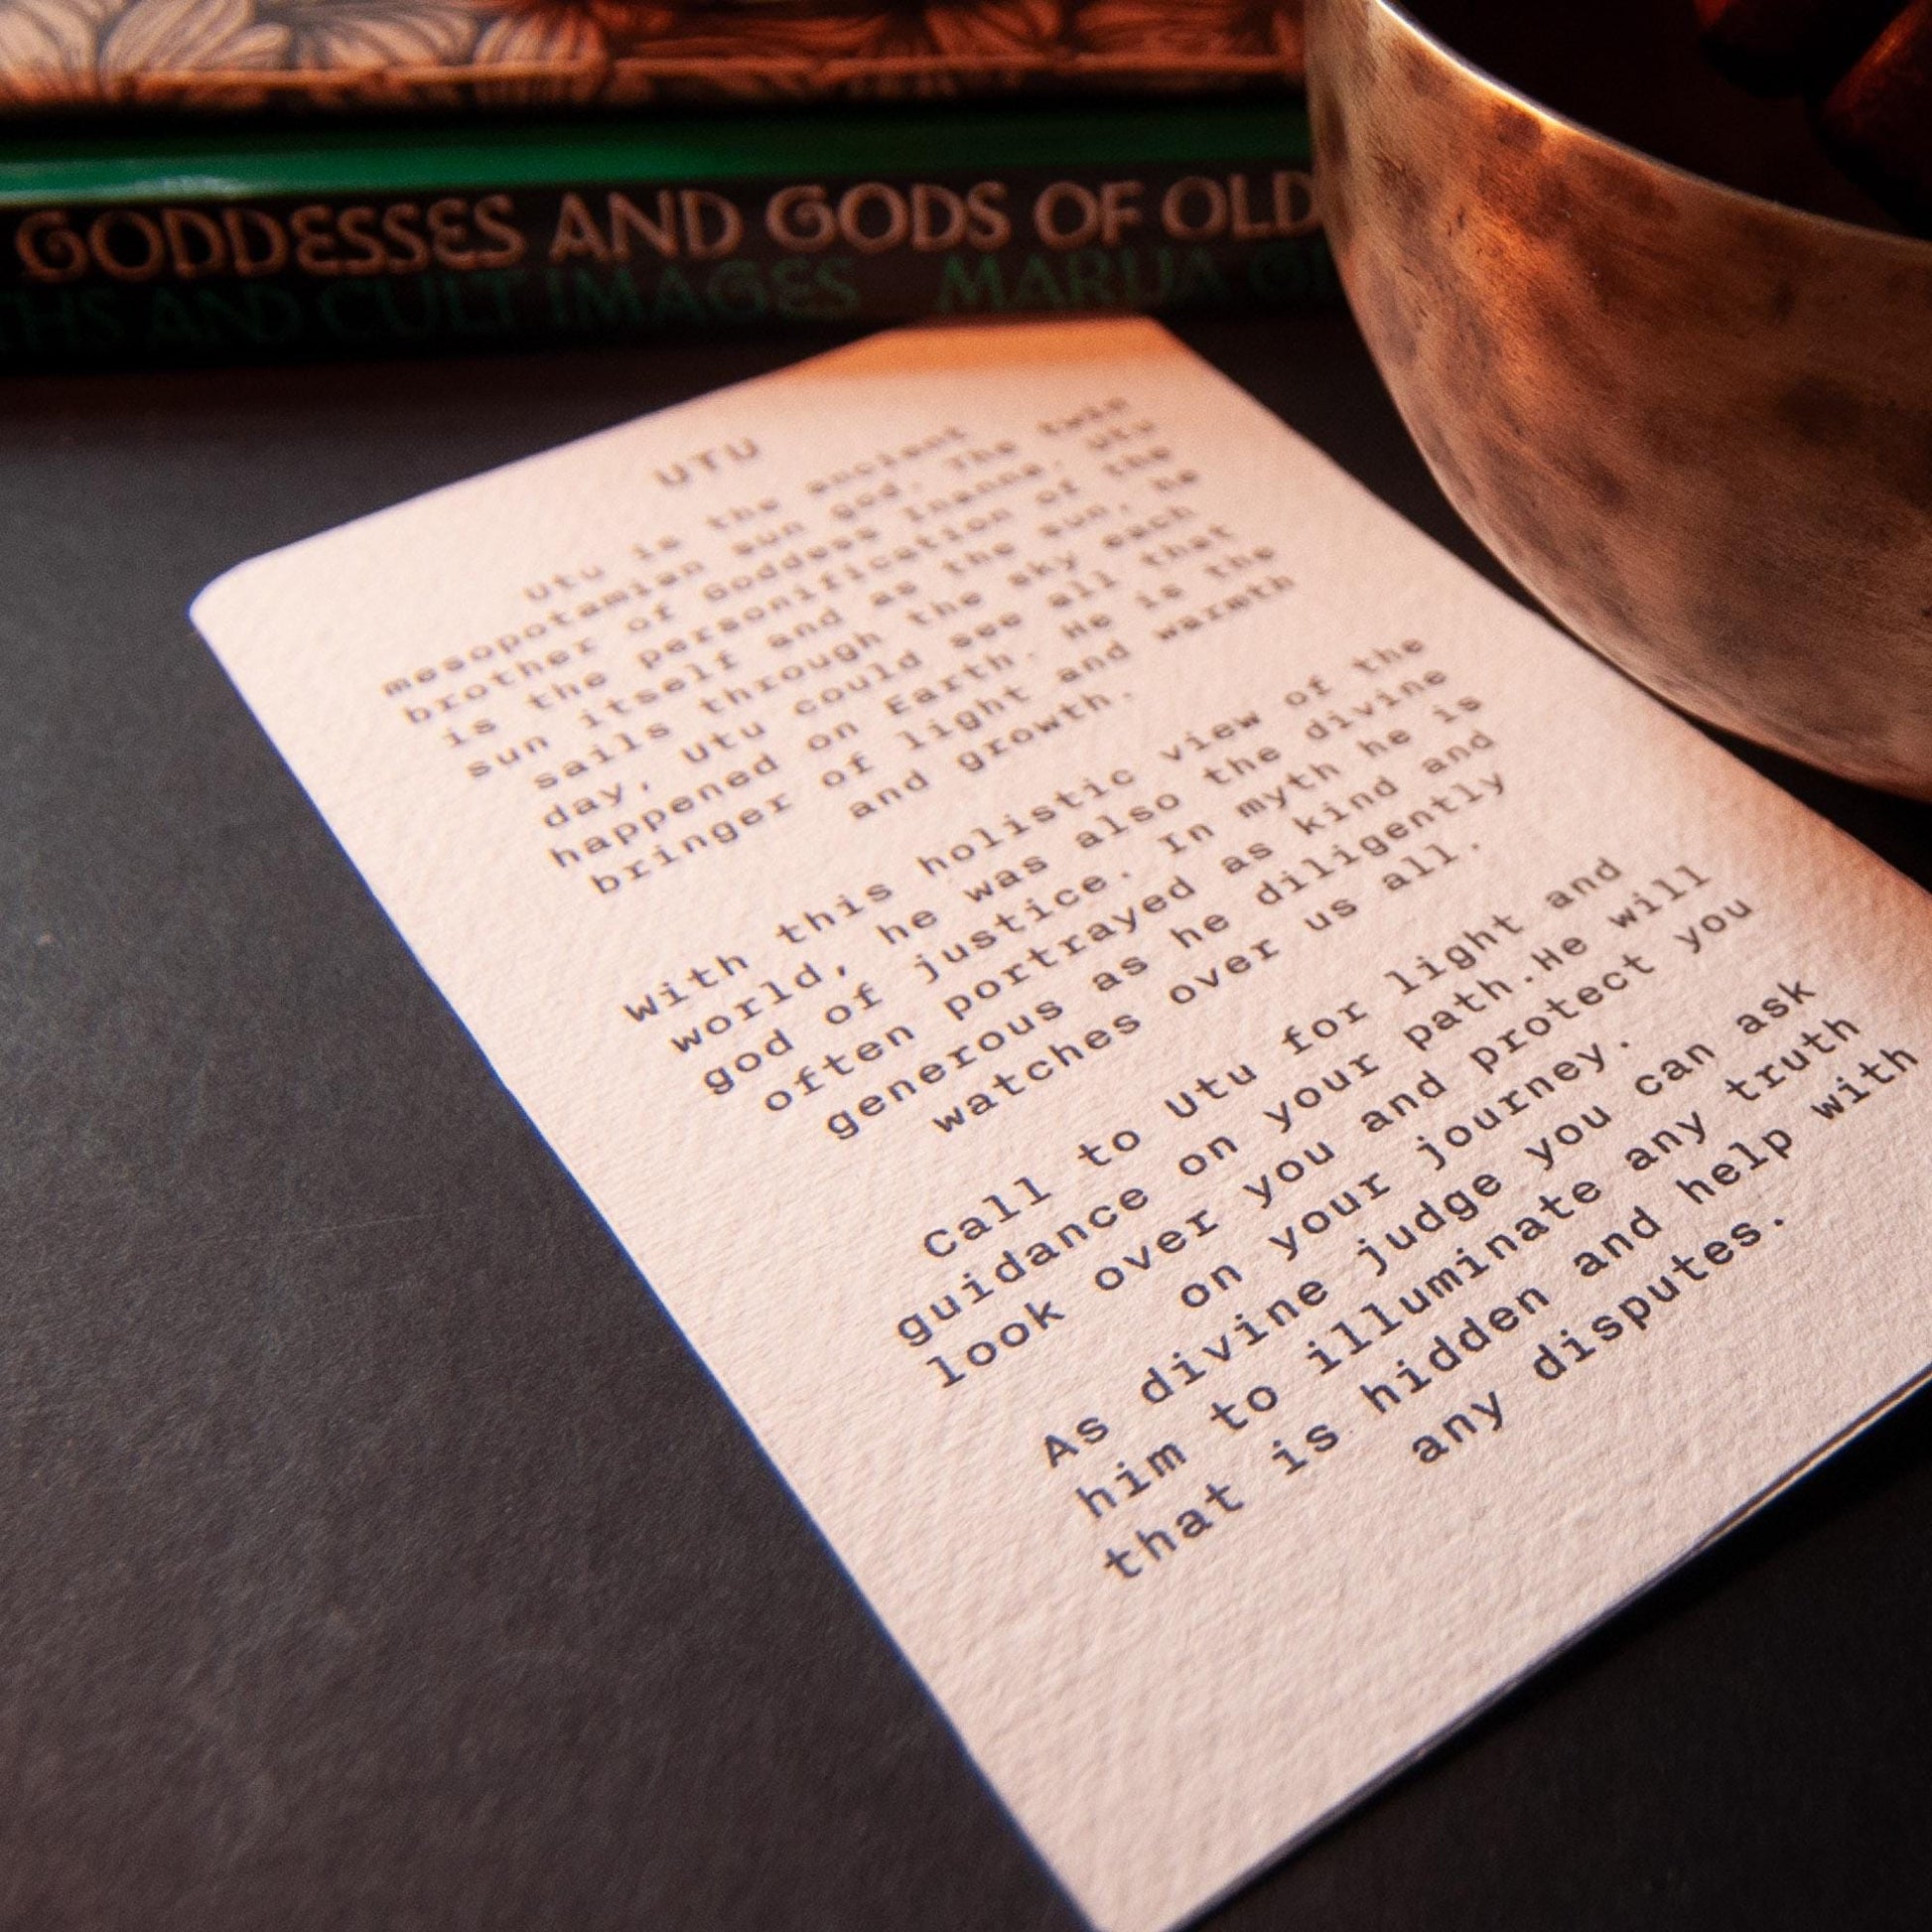 GODDESSES AND GODS OF OLD
THS AND CULT IMAGES MARIJA
UTU
Utu is the ancient
mesopotamian sun god. The twin
brother of Goddess Inanna, Utu
is the personification of the
sun itself and as the sun, he
sails through the sky each
day, Utu could see all that
happened on Earth. He is the
bringer of light and warmth
and growth.
With this holistic view of the
world, he was also the divine
god of justice. In myth he is
often portrayed as kind and
generous as he diligently
watches over us all.
Call to Utu for light and
guidance on your path.He will
look over you and protect you
on your journey.
As divine judge you can ask
him to illuminate any truth
that is hidden and help with
any disputes.